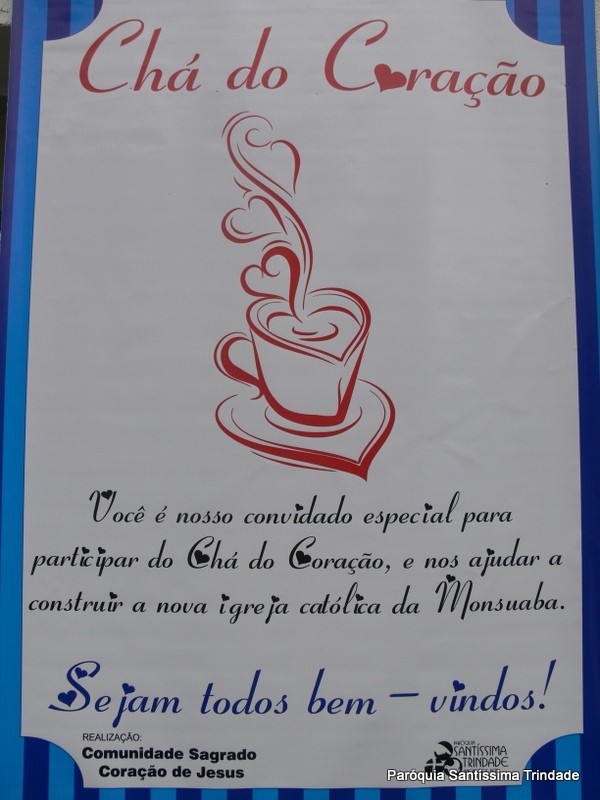 Chá do Coração
Você é nosso convidado especial para
participar do Chá do Coração, e nos ajudar a
construir a nova igreja católica da Monsuaba.
Sejam todos bem – vindos!
REALIZAÇÃO:
Comunidade Sagrado
Coração de Jesus
PARÓQUIA
SANTÍSSIMA
TRINDADE
Paróquia Santíssima Trindade